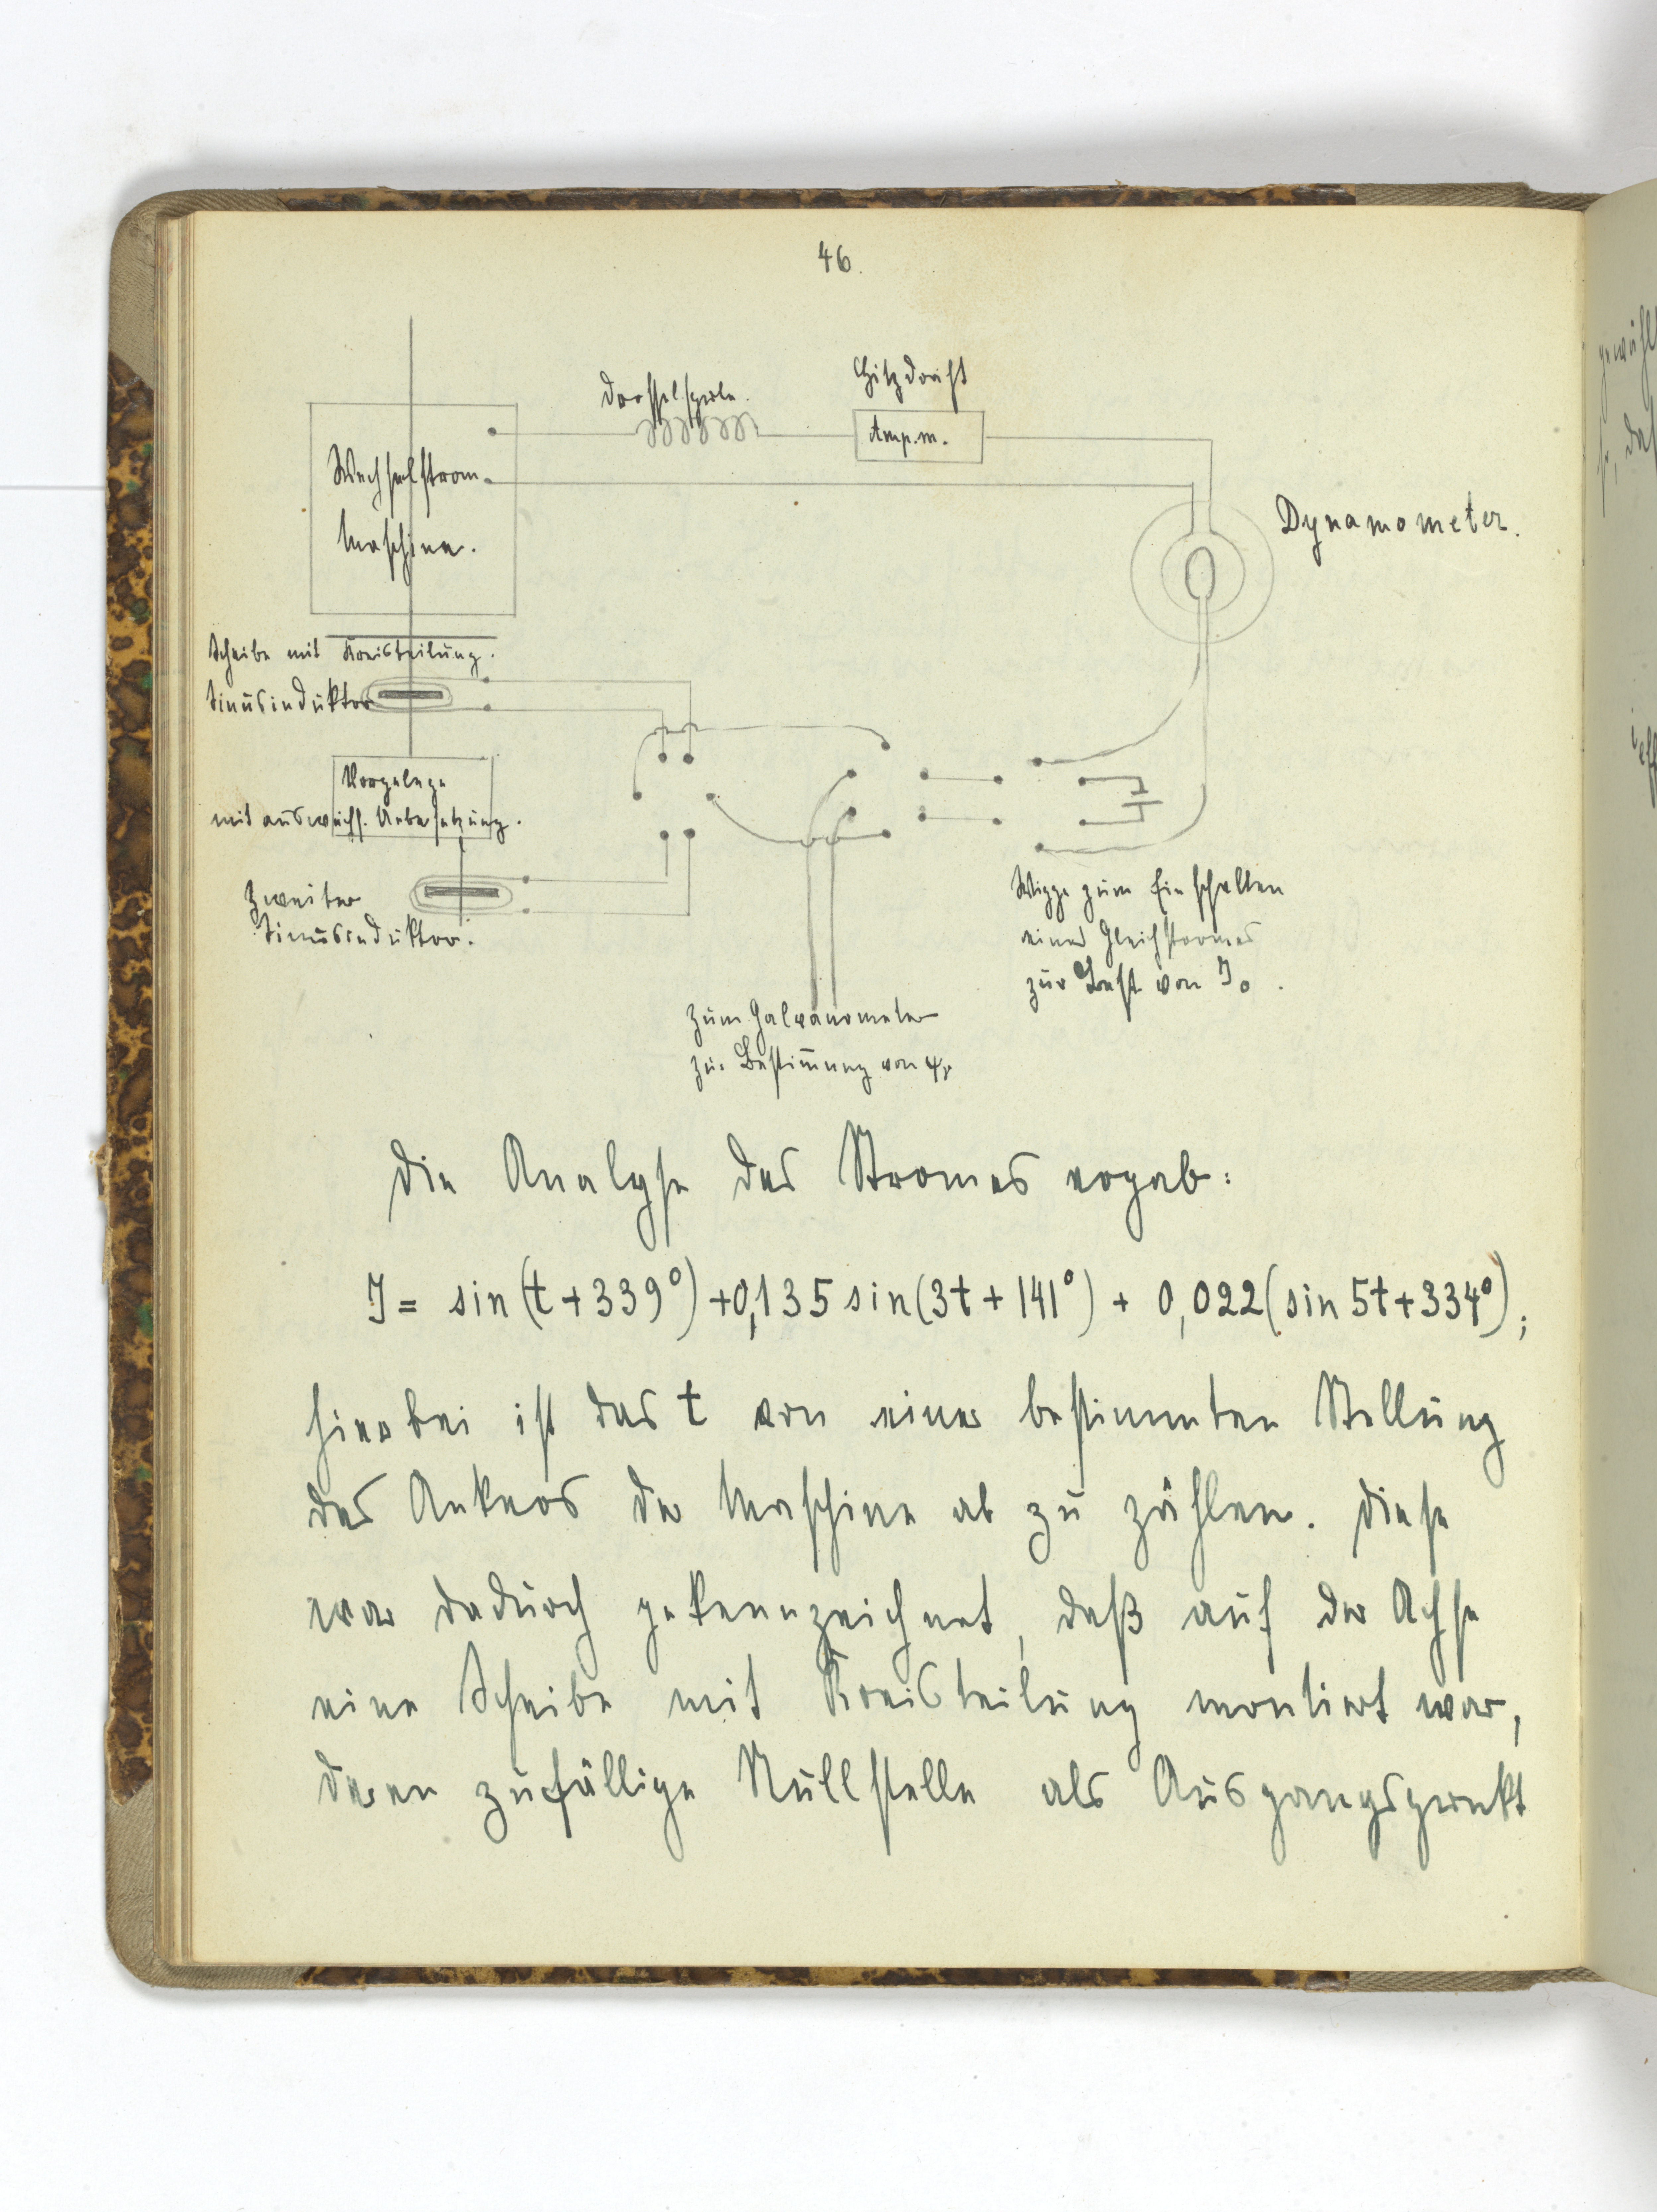 46.
Drosselspule.
Hitzdraht
Amp.m.
Wechselstrom-
Maschine.
Dynamometer.
Scheibe mit Kreisteilung.
Sinusinduktor
Vorgelege
mit auswechs. Uebersetzung.
Zweiter
Sinusinduktor.
Wippe zum Einschalten
eines Gleichstromes
zur Best. von J₀.
Zum Galvanometer
zur Bestim̄ung von φᵣ
Die Analyse des Stromes ergab:
J = sin(t+339°)+0,135 sin(3t+141°) + 0,022(sin 5t+334°);
hierbei ist das t von einer bestimmten Stellung
des Ankers der Maschine ab zu zählen. Diese
war dadurch gekennzeichnet, daß auf der Achse
eine Scheibe mit Kreisteilung montiert war,
deren zufällige Nullstelle als Ausgangspunkt